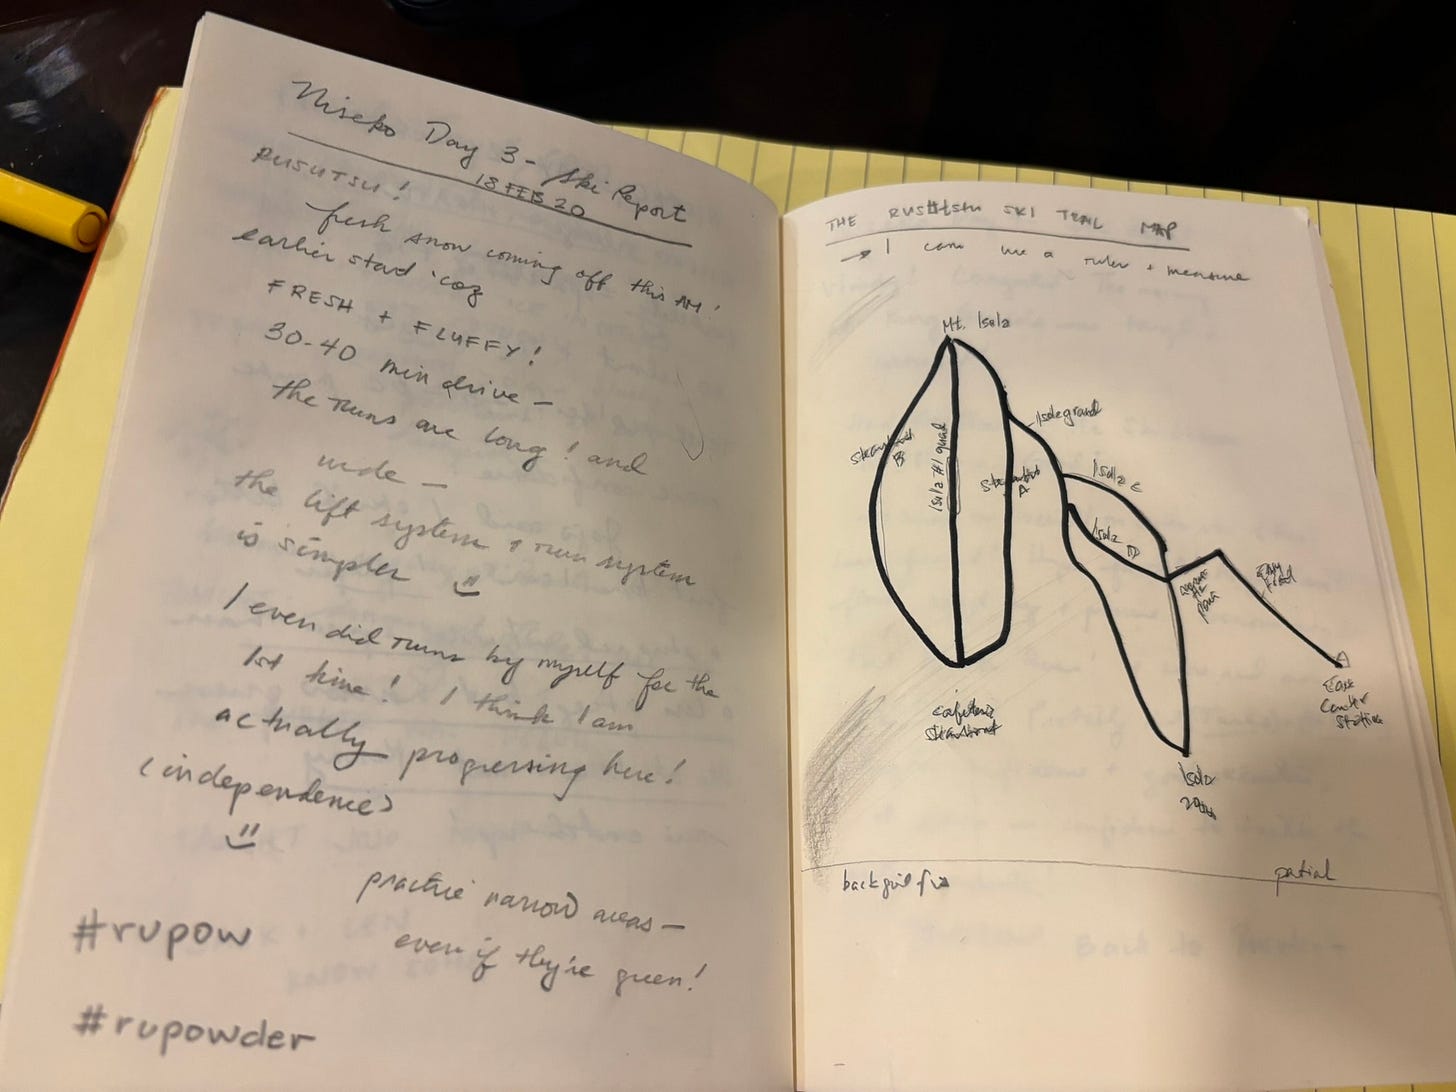 Niseko Day 3 - Ski Report
18 FEB 20
RUSUTSU!
fresh snow coming off this AM!
earlier start 'coz
FRESH + FLUFFY!
30-40 min drive -
the runs are long! and
wide -
the lift system & run system
is simpler
I even did runs by myself for the
1st time! I think I am
actually progressing here!
(independence)
practice narrow areas -
even if they're green!
#rupow
#rupowder
THE RUSUTSU SKI TRAIL MAP
→ I can use a ruler + measure
Mt. Isola
Isola grand
Steamboat
B
Isola #1 quad
Steamboat
A
Isola C
Isola D
East
Center
Station
cafeteria
steamboat
Isola
partial